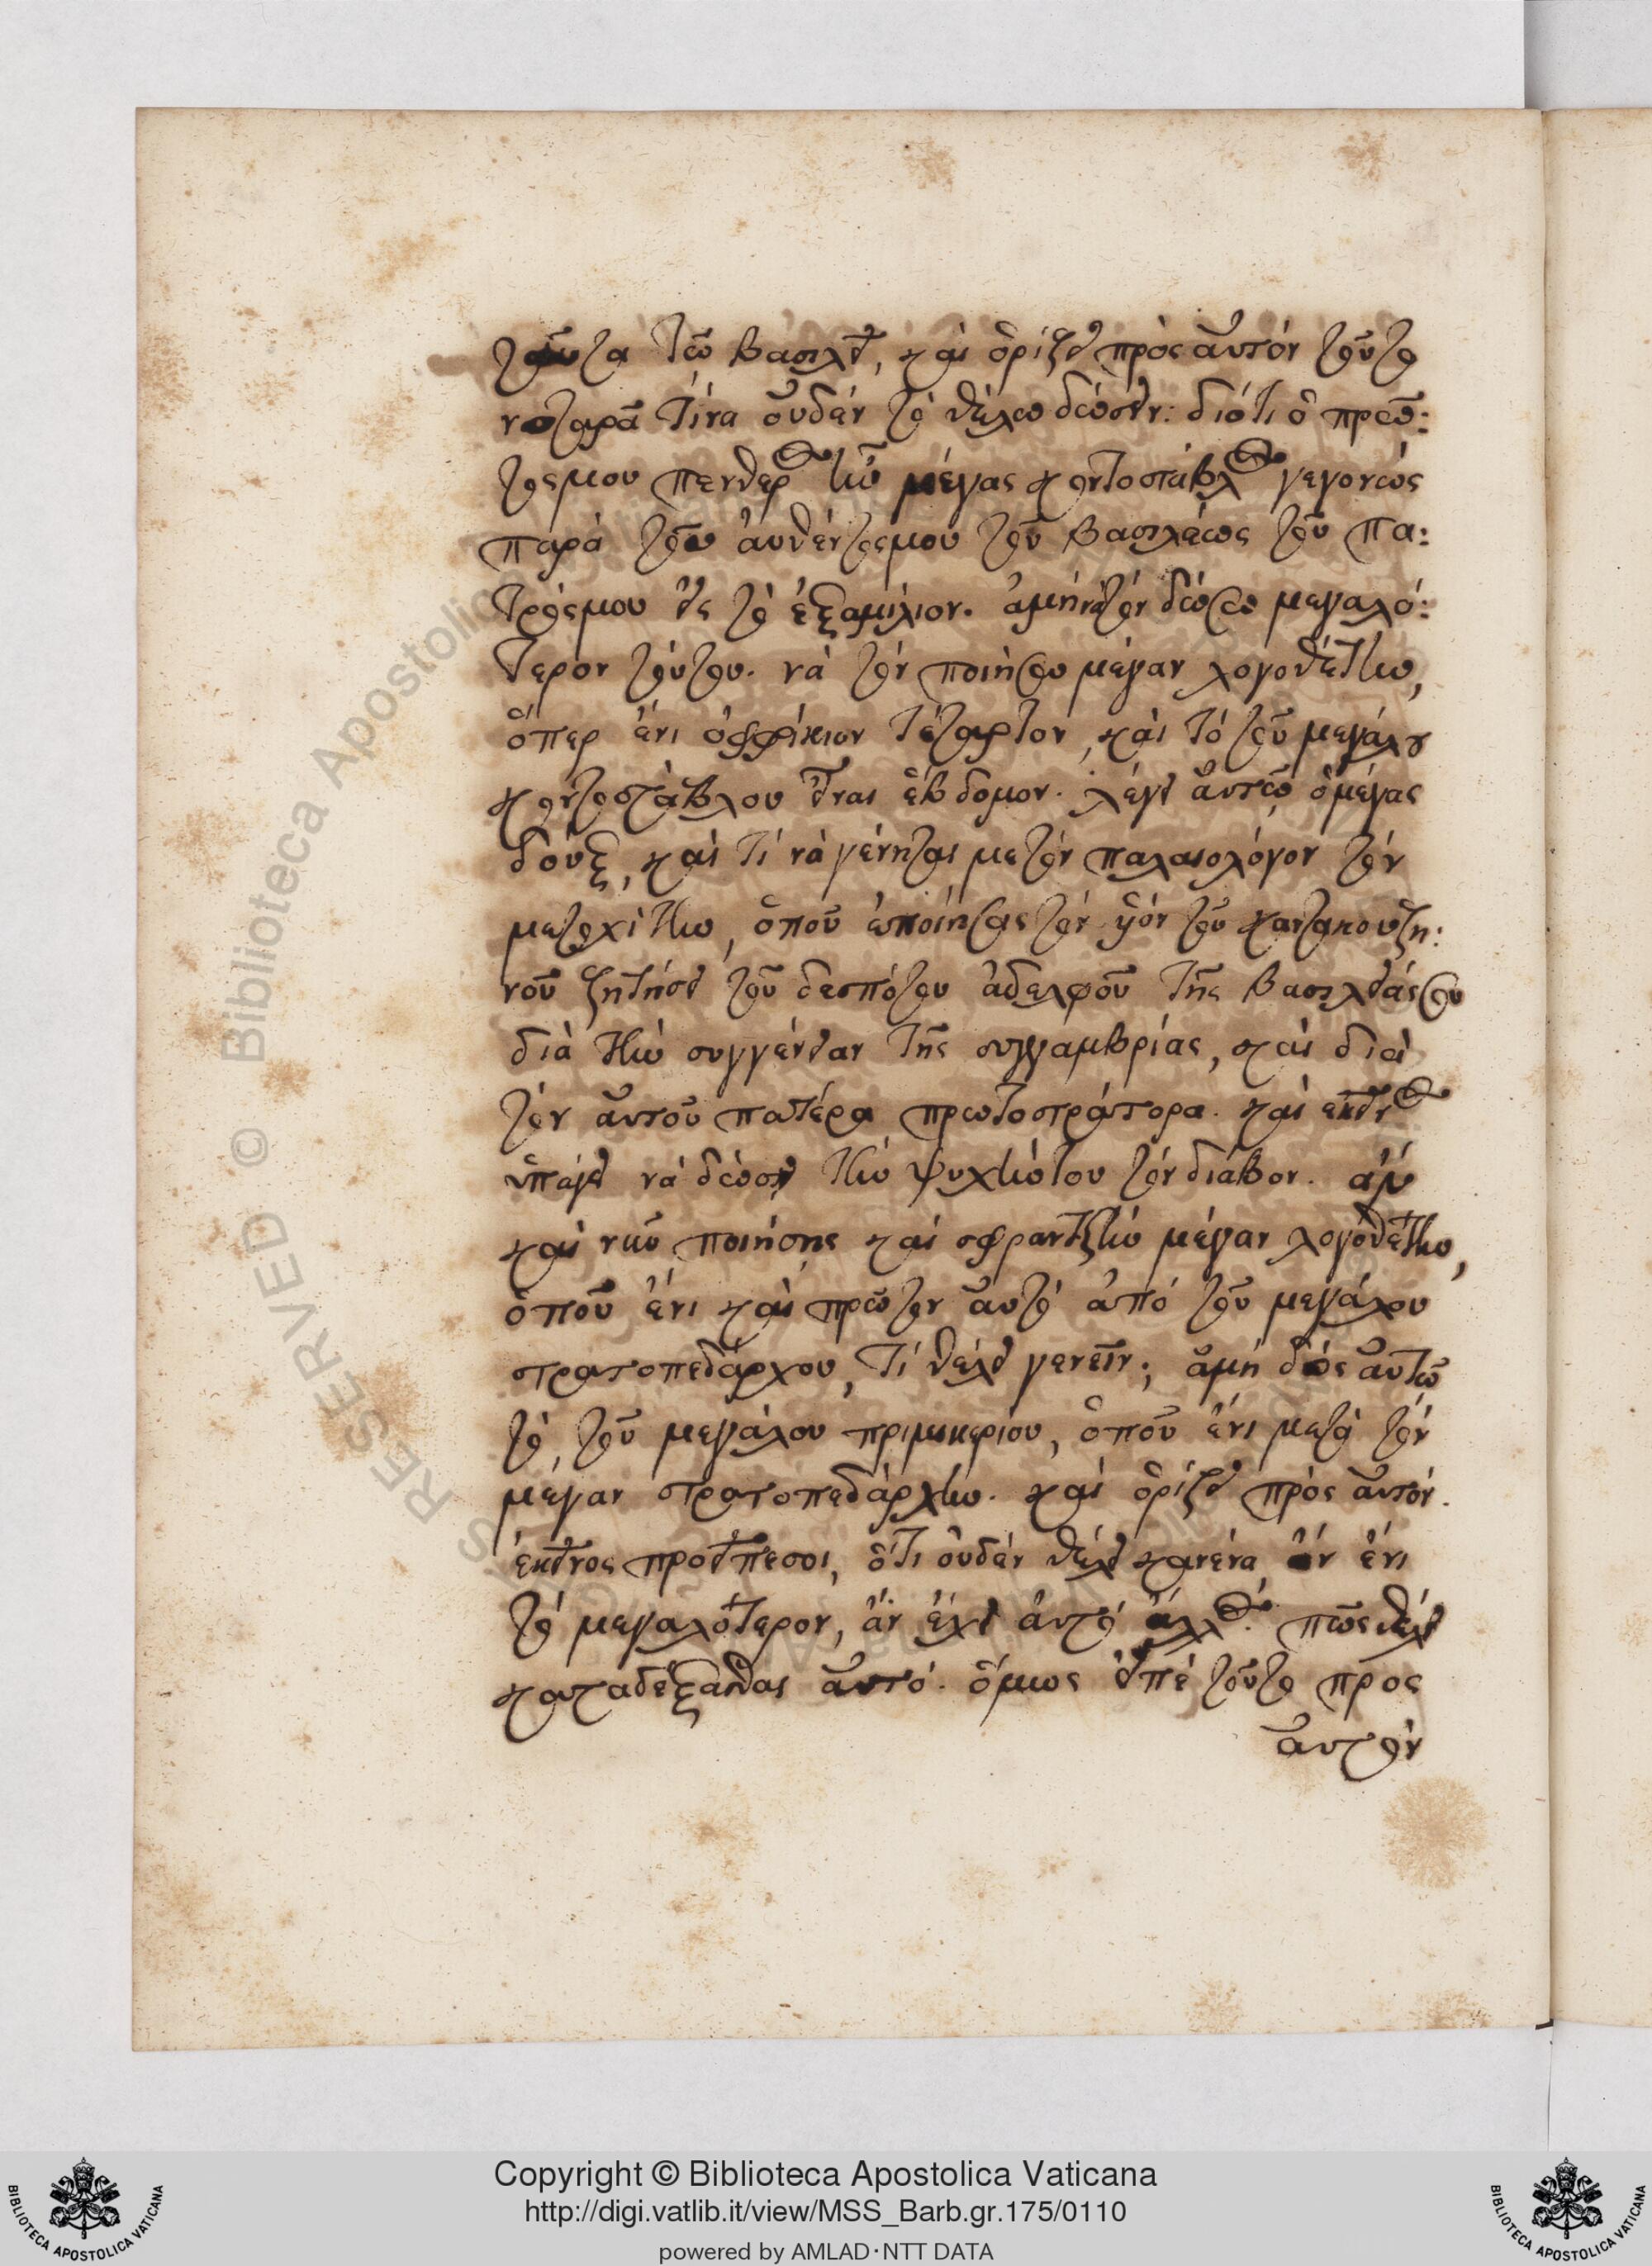 ταῦτα τῶ βασιλεῖ, καὶ ὁρίζει πρὸς αὐτόν τοῦτο
τίνα οὐδέν τὸ θέλω δώσειν: διότι ὁ πρῶ:
τοςμου πενθερὸς ἦν μέγας κοντοστάβλος γεγονώς
παρὰ τοῦ ἀυθέντοςμου τοῦ βασιλέως τοῦ πα:
τρόςμου εἰς τὸ ἑξαμίλιον. ἀμὴ νὰ τὸν δώσω μεγαλό:
τερον τούτου. νὰ τὸν ποιήσω μέγαν λογοθέτην,
ὅπερ ἔνι ὀφφίκιον τέταρτον, καὶ τὸ τοῦ μεγάλου
κοντοστάβλου εἶναι ἕβδομον. λέγει αὐτῶ ὁ μέγας
δοὺξ, καὶ τί νὰ γένηται με τὸν παλαιολόγον τὸν
μετοχίτην, ὁποῦ ἐποίησας τὸν ὑὸν τοῦ καντακουζη:
νοῦ ζητήσει τοῦ δεσπότου ἀδελφοῦ τῆς βασιλείάςσου
διὰ τὴν συγγένειαν τῆς συγγαμβρίας, καὶ διὰ
τὸν αὐτοῦ πατέρα πρωτοστράτορα. καὶ ἐκεῖνος
ὑπάγει νὰ δώση τὴν ψυχήν του τὸν διάβον. ἂν
καὶ νῦν ποιήσης καὶ σφραντζὴν μέγαν λογοθέτην,
ὁποῦ ἔνι καὶ πρῶτον αὐτὸ ἀπό τοῦ μεγάλου
στρατοπεδάρχου, τί θέλει γενεῖν; ἀμὴ δὸς αὐτῶ
τὸ, τοῦ μεγάλου πριμικερίου, ὁποῦ ἔνι μετὰ τὸν
μέγαν στρατοπεδάρχην. καὶ ὁρίζει πρὸς αὐτόν.
ἐκεῖνος προεῖπεσοι, ὅτι οὐδέν θέλει κανένα ἂν ἔνι
τὸ μεγαλότερον, ἂν ἔχει ἀυτὸ ἄλλος. πῶς θέλει
καταδέξασθαι αὐτό. ὅμως εἰπὲ τοῦτο πρὸς
αὐτὸν
Copyright © Biblioteca Apostolica Vaticana
http://digi.vatlib.it/view/MSS_Barb.gr.175/0110
powered by AMLAD·NTT DATA